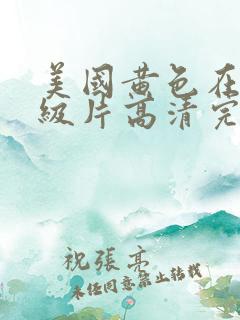 美國黃色在
級片高清完
祝張亮
未经同意禁止转载